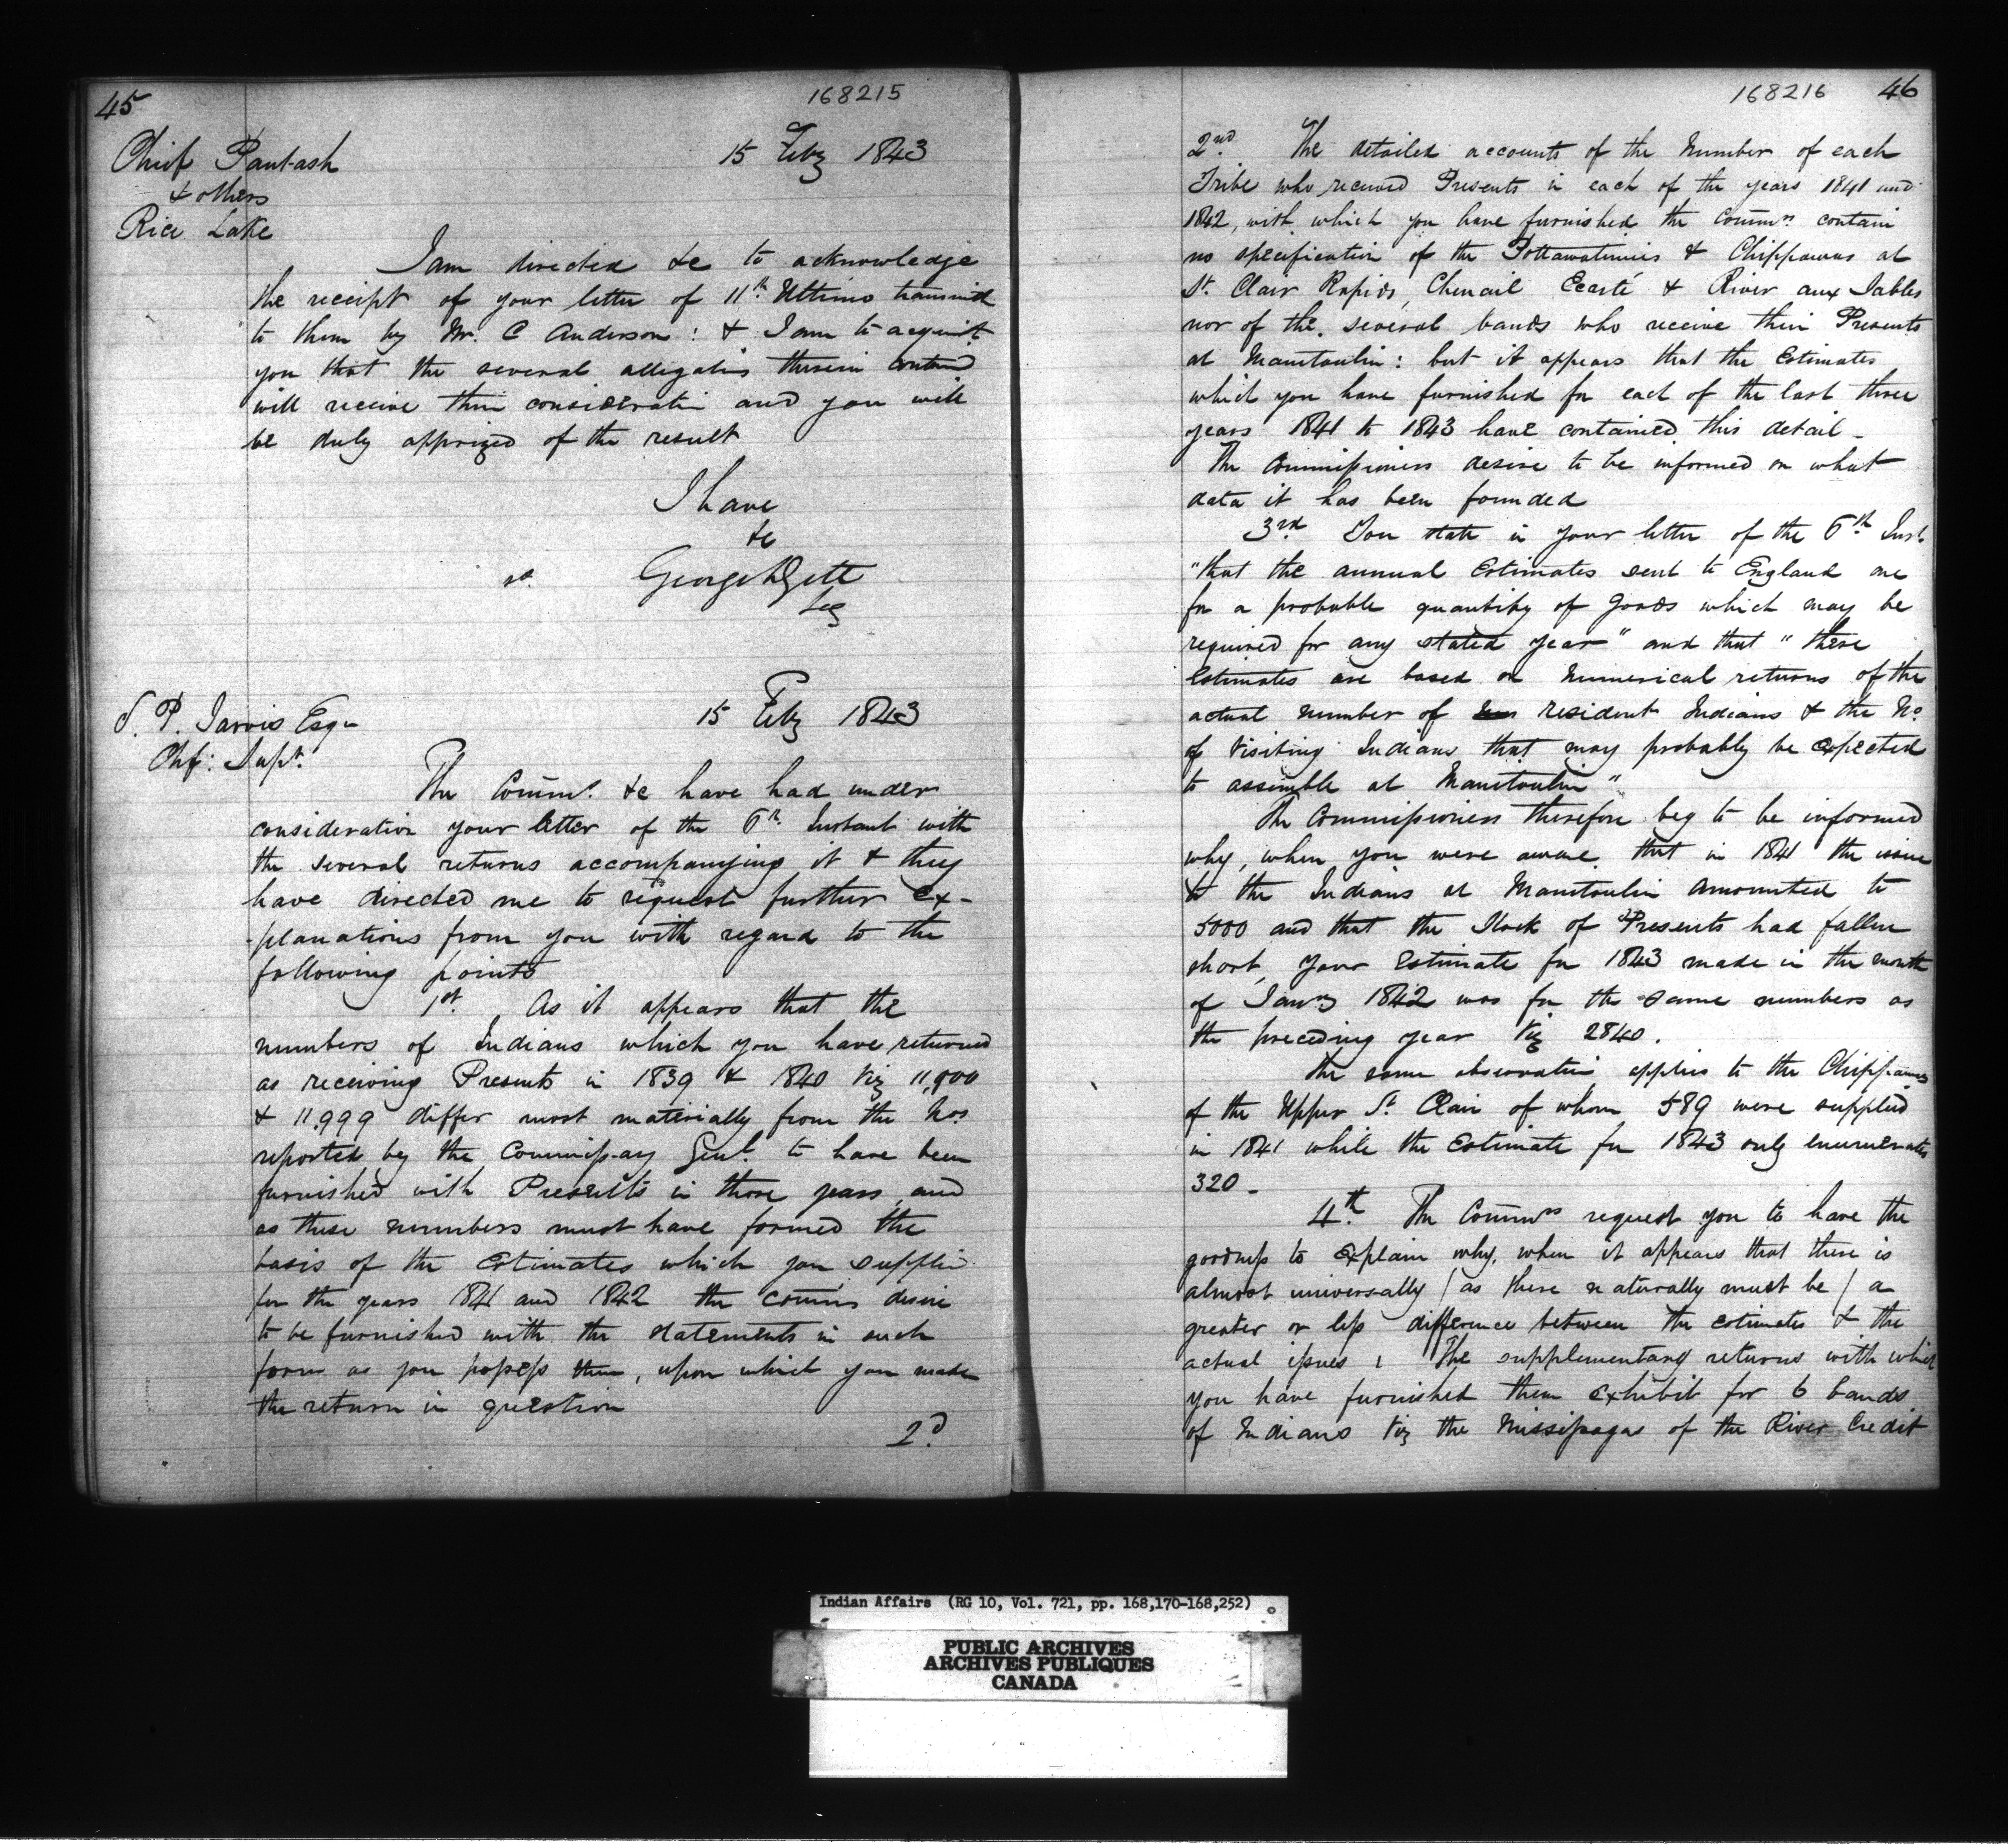 45
168215
Chief Pautash
15 Feby 1843
& others
Rice Lake
I am directed &c to acknowledge
the receipt of your letter of 11th Ultimo transmitd
to them by Mr. C Anderson : & I am to acquint
you that the several allegatins therein containd
will receive their consideratin and you will
be duly apprized of the result
I have
&c
George
Secy
S. P. Jarvis Esqr
15 Feby 1843
Chf: Supt.
The Commrs. &c have had under
consideration your letter of the 6th. Instant with
the several returns accompanying it & they
have directed me to request further ex-
-planations from you with regard to the
following points
1st. As it appears that the
numbers of Indians which you have returned
as receiving Presents in 1839 & 1840 Viz 11,800
& 11,999 differ most materially from the Nos
reported by the Commissary Genl. to have been
furnished with Presents in those years and
as these numbers must have formed the
basis of the Estimates which you supplied
for the years 1841 and 1842 the Commrs desire
to be furnished with the statements in such
form as you possess them, upon which you made
the return in question
2d.
168216 46
2nd. The detailed accounts of the Number of each
Tribe who received Presents in each of the years 1841 and
1842, with which you have furnished the Commrs contain
no specification of the Pottawatimies & Chippawas at
St. Clair Rapids, Chenail Ecarté & River aux Sables
nor of the several bands who receive their Presents
at Manitoulin : but it appears that the Estimates
which you have furnished for each of the last three
years 1841 to 1843 have contained this detail -
The Commissioners desire to be informed on what
data it has been founded
3rd You state in your letter of the 6th Inst.
"that the annual Estimates sent to England are
for a probable quantity of Goods which may be
required for any stated year" and that "these
Estimates are based on Numerical returns of the
actual number of resident Indians & the No.
of Visiting Indians that may probably be expected
to assemble at Manitoulin"
The Commissioners therefore beg to be informed
why, when you were aware that in 1841 the issue
to the Indians at Manitoulin amounted to
5000 and that the Stock of Presents had fallen
short, your Estimate for 1843 made in the month
of Jany 1842 was for the same numbers as
the preceding year Viz 2840.
The same observation applies to the Chippawas
of the Upper St. Clair of whom 589 were supplied
in 1841 while the Estimate for 1843 only enumerates
320 -
4th. The Commrs request you to have the
goodness to explain why, when it appears that there is
almost universally ( as there naturally must be ) a
greater or less difference between the estimates & the
actual issues ; The supplementary returns with which
you have furnished them exhibit for 6 bands
of Indians Viz the Missisagas of the River Credit
Indian Affairs (RG 10, Vol. 721, pp. 168,170-168,252)
PUBLIC ARCHIVES
ARCHIVES PUBLIQUES
CANADA